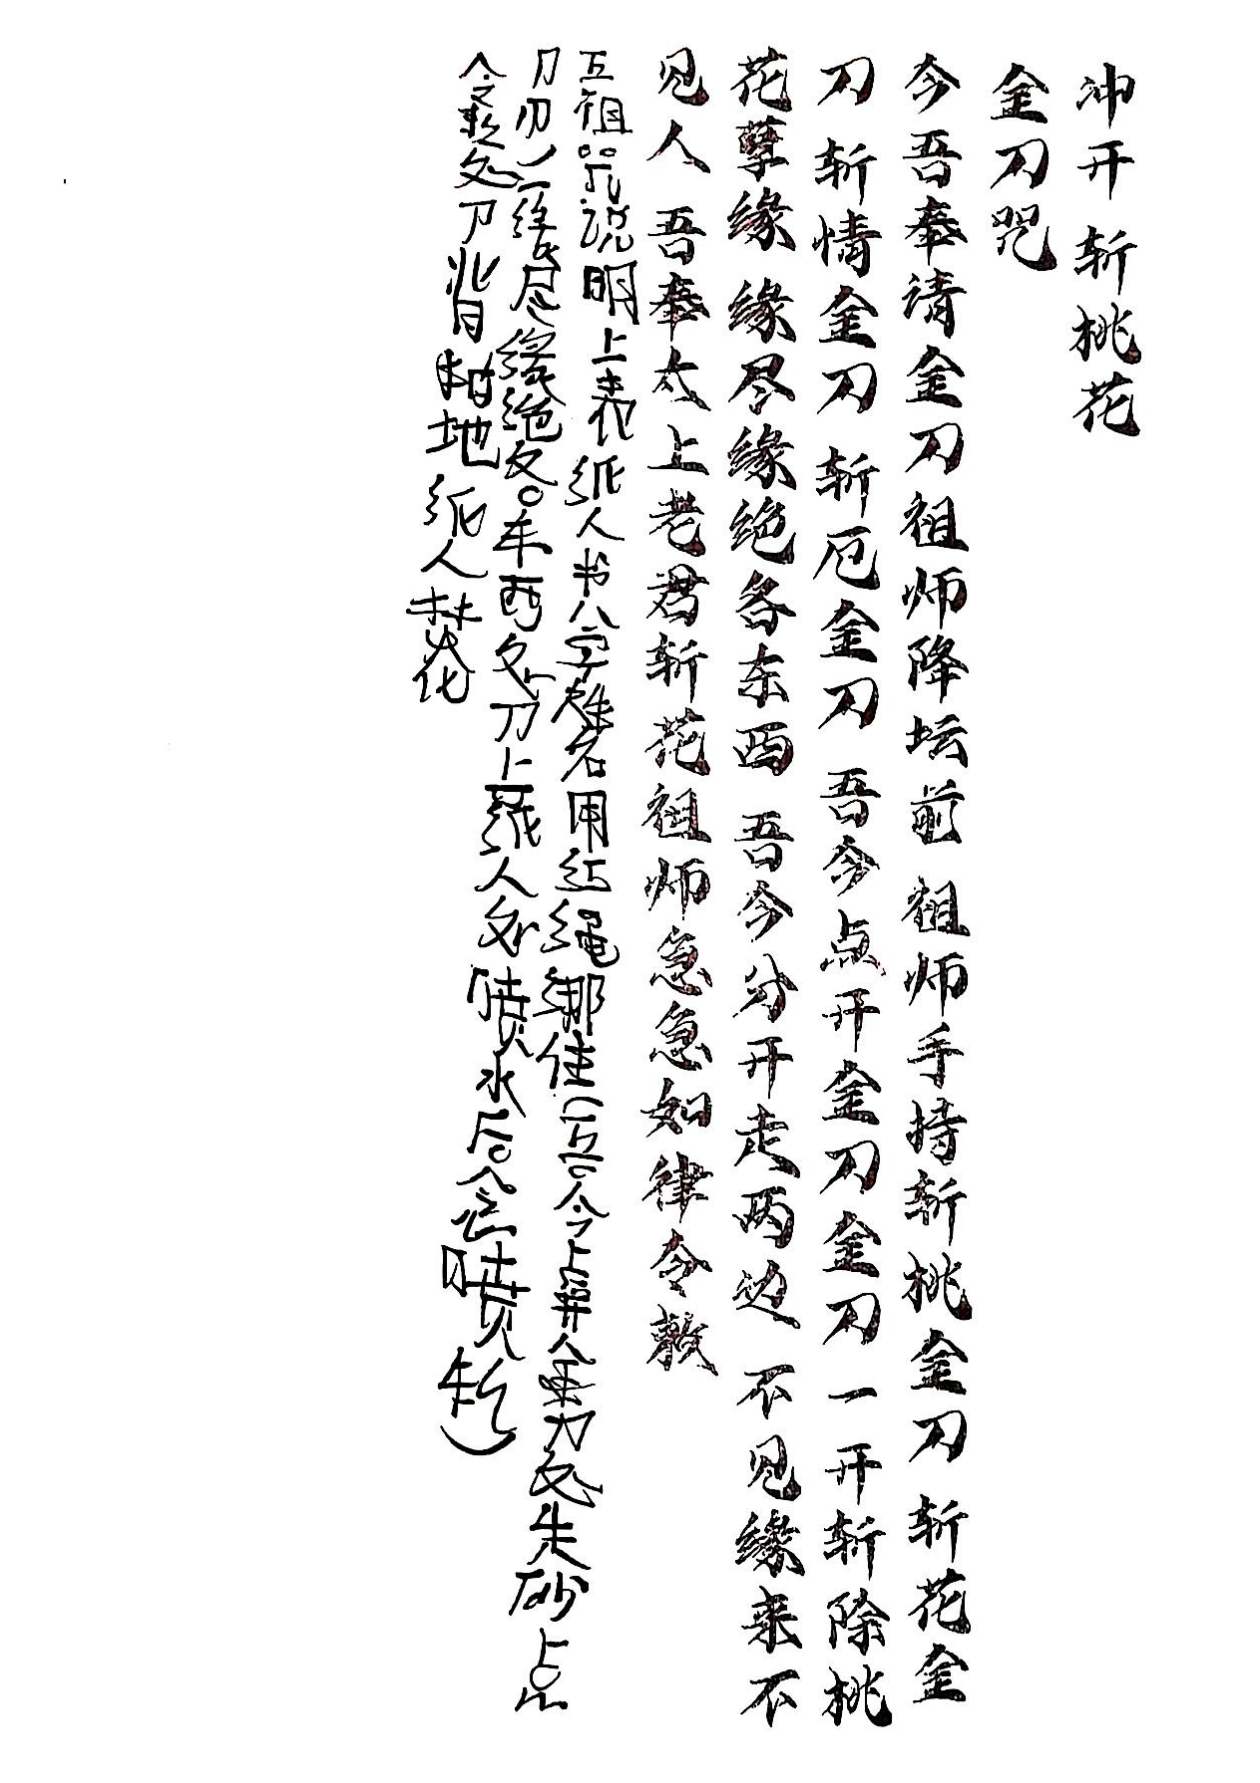 冲开斩桃花
金刀咒
今吾奉请金刀祖师降坛前 祖师手持斩桃金刀 斩花金
刀 斩情金刀 斩厄金刀 吾今点开金刀金刀一开斩除桃
花孽缘 缘尽缘绝各东西 吾今分开走两边 不见缘来不
见人 吾奉太上老君斩花祖师急急如律令敕
祖 说明 上表 纸人书八字姓名用红绳绑住(今上 朱砂点
刀刃 缘尽缘绝各 东西 刀上 纸人 喷水后 念 喷 )
念 刀背拍地 纸人焚化